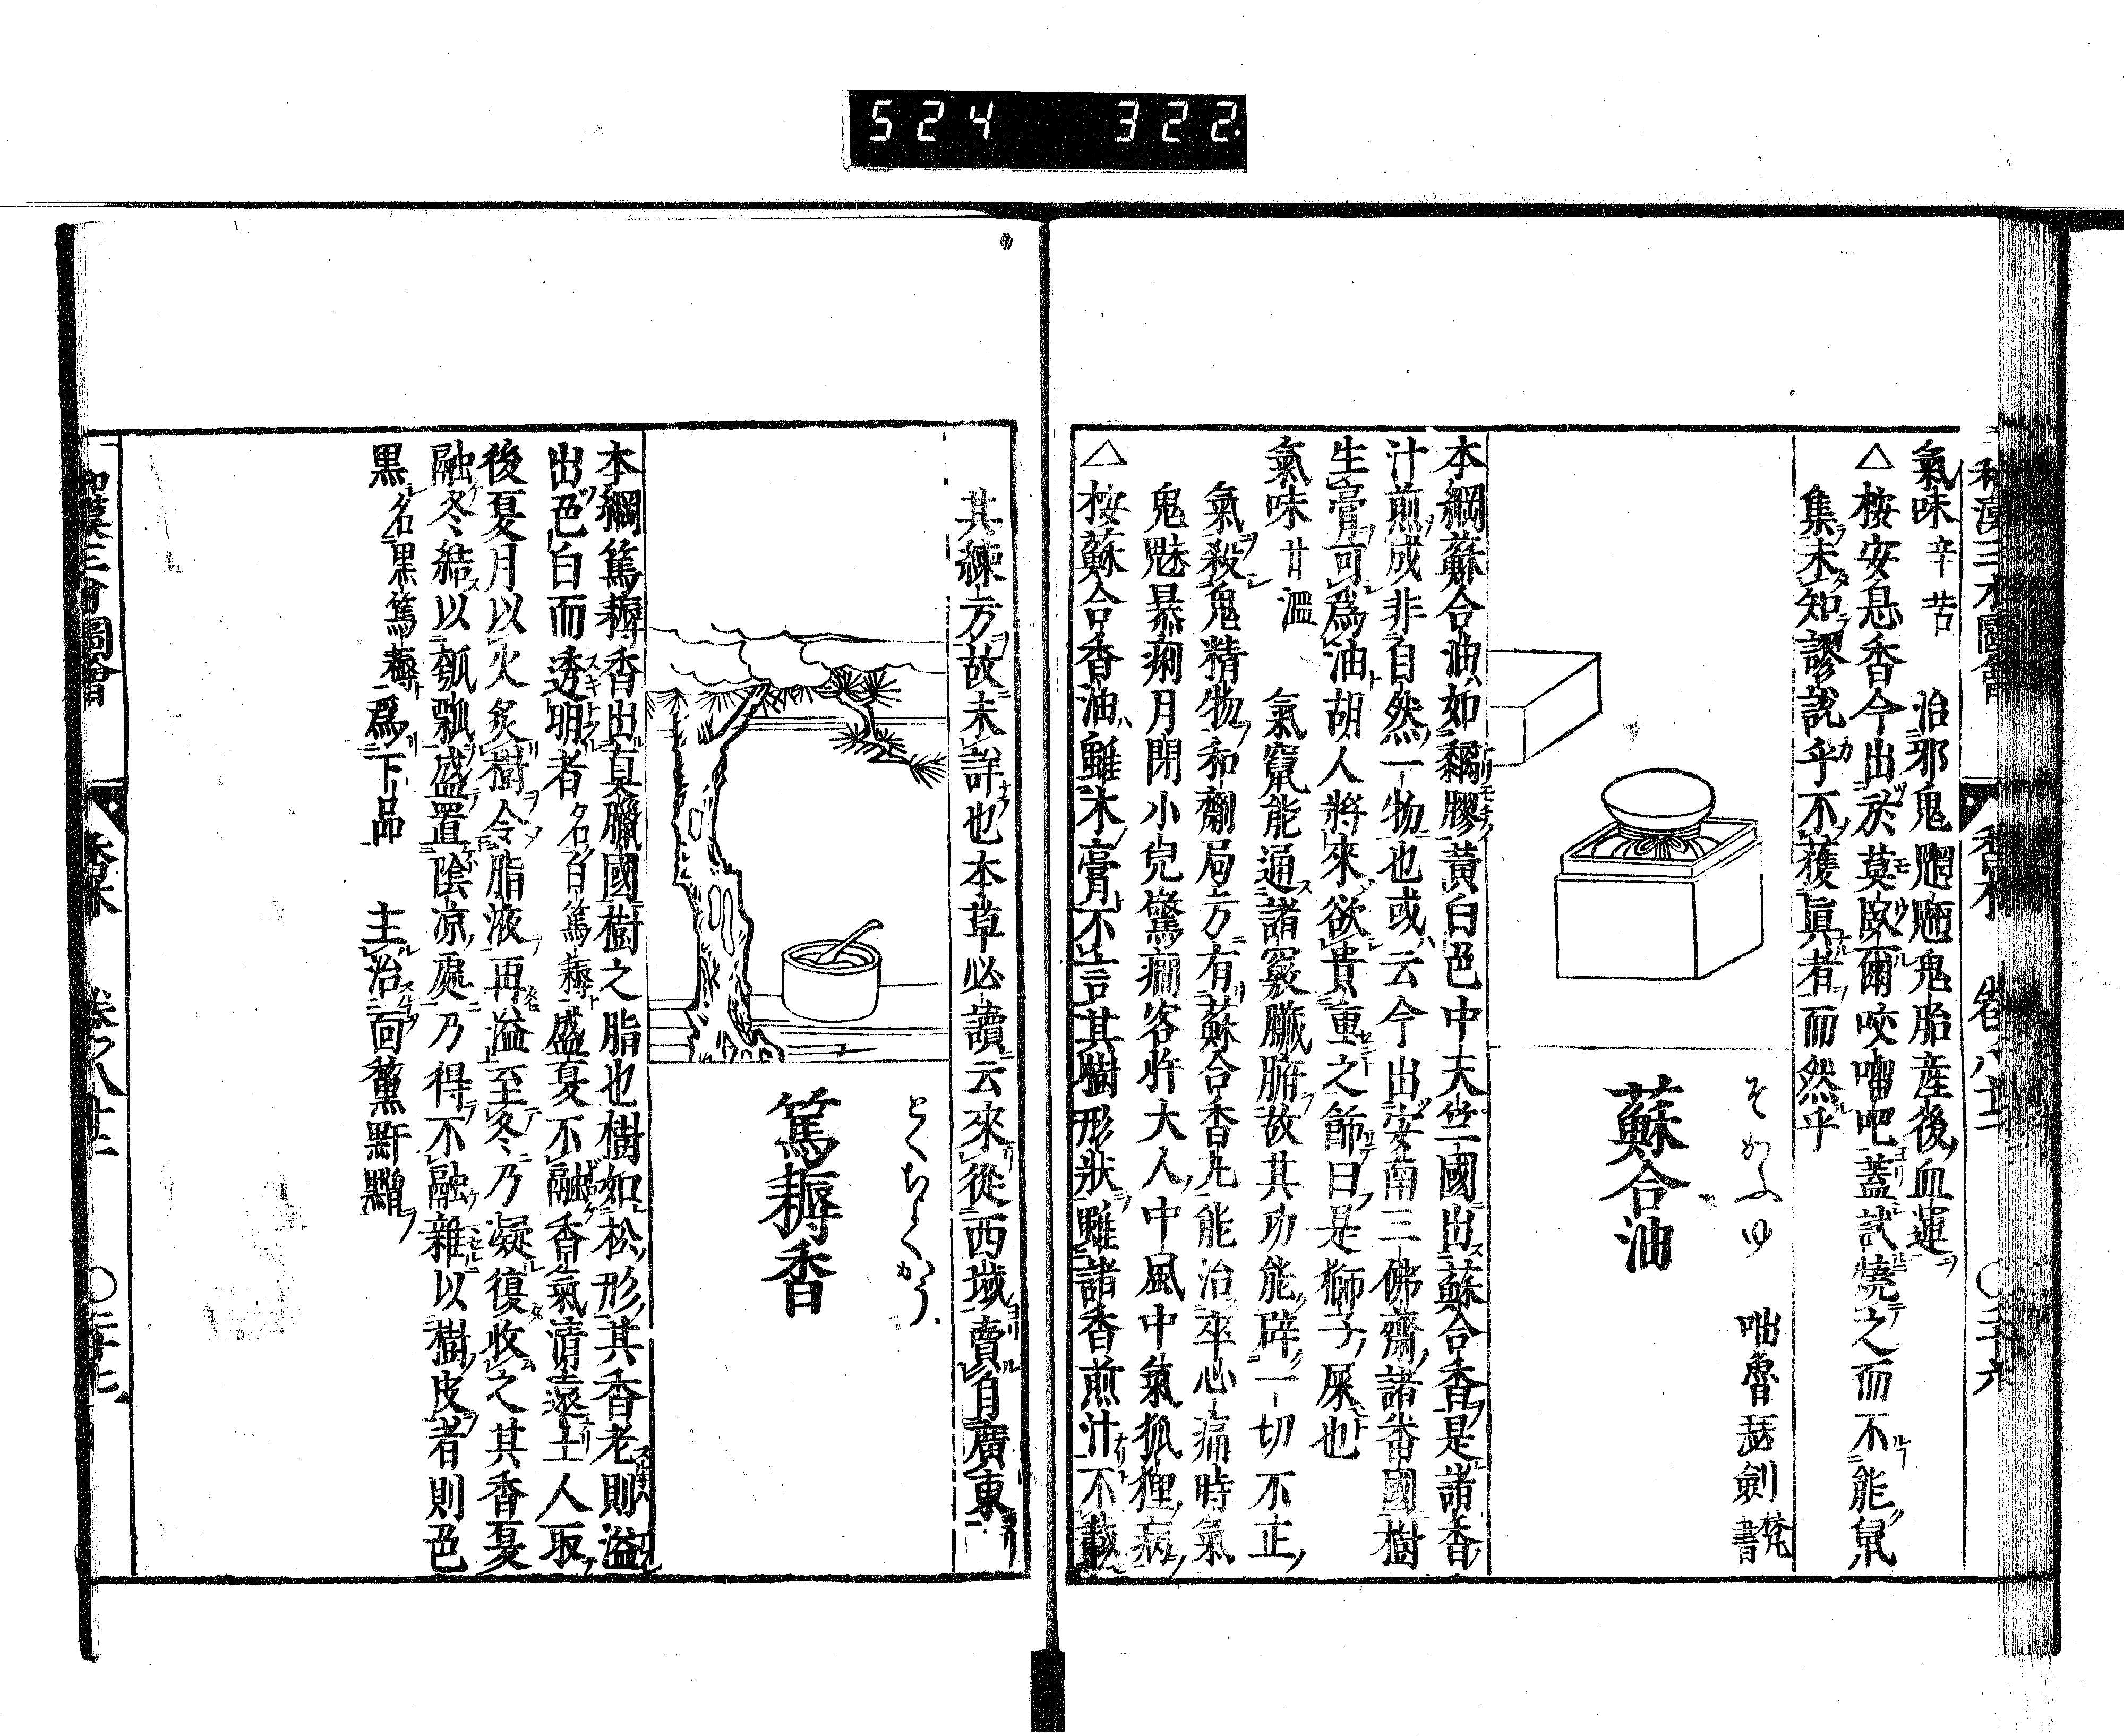 524 322
和漢三才圖會 香木 卷ノ八十二 ○二十六
氣味辛苦 治邪鬼魍魎鬼胎産後血運
△桉安息香今出於莫臥爾咬𠺕吧蓋試燒之而不能鼠
集未知謬說乎不獲眞者而然乎
そかふゆ 咄魯瑟劍 梵書
蘇合油
本綱蘇合油如黐膠黃白色中天竺國出蘇合香是諸香
汁煎成非自然一物也或云今出安南三佛齋諸番國樹
生膏可爲油胡人將來欲貴重之飾曰是獅子屎也
氣味甘溫 氣竄能通諸竅臟腑故其功能辟一切不正
氣殺鬼精物和劑局方有蘇合香丸能治卒心痛時氣
鬼魅暴痢月閉小兒驚癇客忤大人中風中氣狐狸病
△桉蘇合香油雖木膏不言其樹形狀雖諸香煎汁不載
其練方故未詳也本草必讀云來從西域賣自廣東
とくぢよくかう
篤耨香
本綱篤耨香出真臘國樹之脂也樹如松形其香老則溢
出色白而透明者名白篤耨盛夏不融香氣清遠土人取
後夏月以火炙樹令脂液再溢至冬乃凝復收之其香夏
融冬結以瓠瓢盛置陰凉處乃得不融雜以樹皮者則色
黒名黒篤耨爲下品 主治面黧䵟䵳
和漢三才圖會 香木 卷ノ八十二 ○二十七